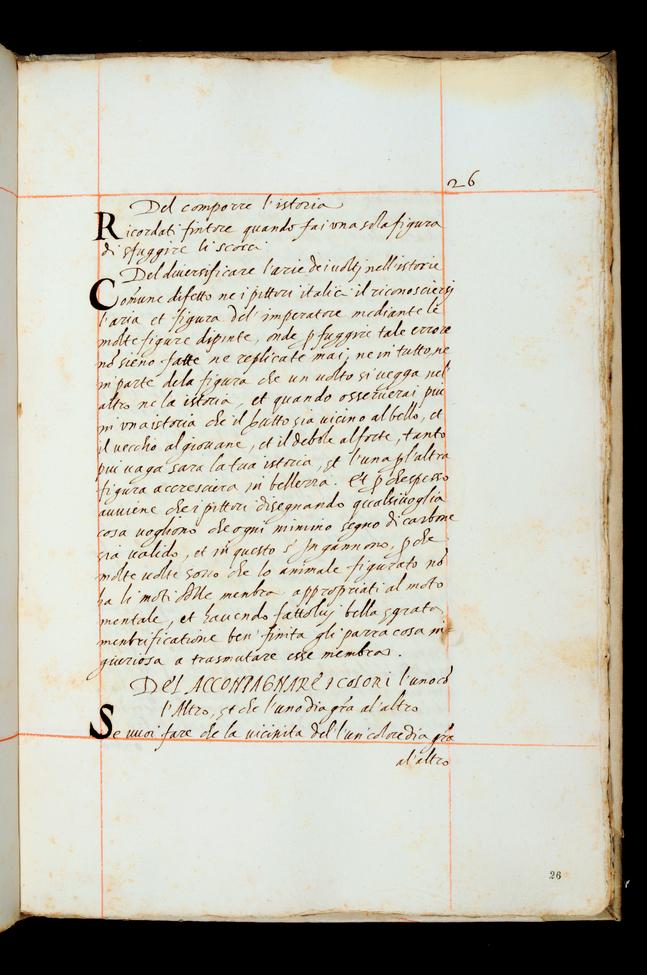 26
Del comporre l'istoria
Ricordati fintore quando fai vna solla figura
di sfuggire li scorci
Del diuersificare l'arie de i uolti nell'istorie
Comune difetto ne i pittori italici il riconosciersi
l'aria et figura del' imperatore mediante le
molte figure dipinte, onde p fuggire tale errore
nō sieno fatte ne replicate mai, ne in tutto, ne
in parte dela figura che un uolto si uegga nel
altro ne la istoria, et quando osseruerai piu
in vna istoria che il brutto sia uicino al bello, et
il vecchio al giouane, et il debole al forte, tanto
piu uaga sara la tua istoria, et l'una p l'altra
figura accresciera in bellezza. Et p che spesso
auuiene che i pittori disegnando qualsiuoglia
cosa uogliono che ogni minimo segno di carbone
sia ualido, et in questo s'Ingannono, p che
molte uolte sono che lo animale figurato nō
ha li moti delle menbra appropriati al moto
mentale, et hauendo fatto lui bella e grata
menbrificatione ben' finita gli parra cosa in=
giuriosa a trasmutare esse membra.
DEL ACCOMPAGNARE I COLORI l'uno cō
l'Altro, et che l'uno dia gra al'altro
Se vuoi fare che la uicinita del l'un' colore dia gra
al'altro
26